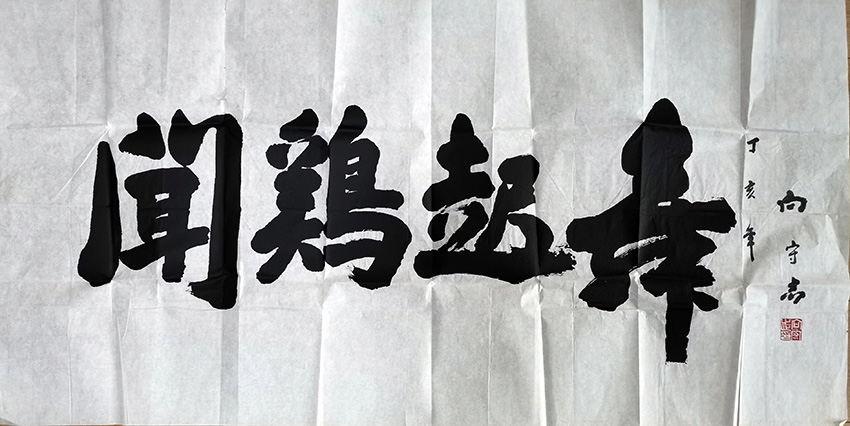 聞鷄起舞
丁亥年
向守志